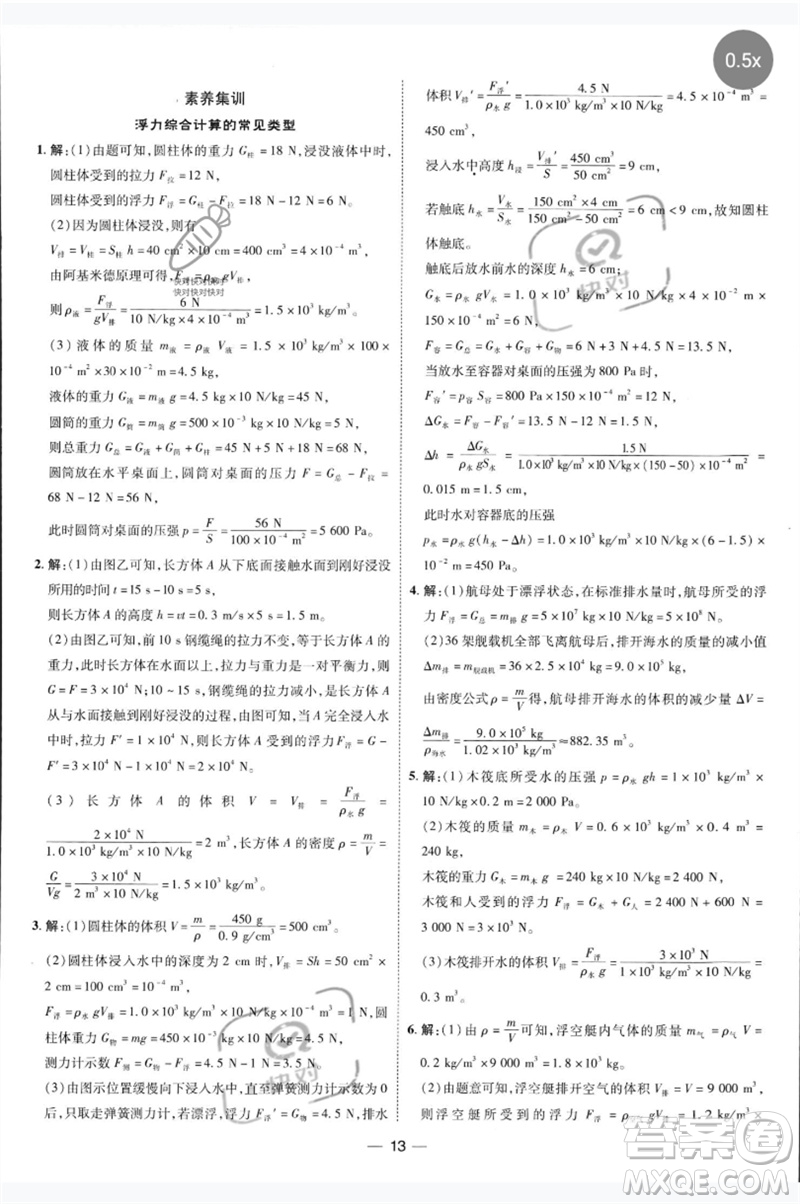 0.5x
素养集训
浮力综合计算的常见类型
1. 解:(1)由题可知,圆柱体的重力 G柱=18 N,浸没液体中时,
圆柱体受到的拉力 F拉=12 N,
圆柱体受到的浮力 F浮=G柱-F拉=18 N-12 N=6 N.
(2)因为圆柱体浸没,则有
V排=V柱=S柱 h=40 cm²×10 cm=400 cm³=4×10⁻⁴ m³,
由阿基米德原理可行,F浮=ρ液 gV排,
则 ρ液=F浮/gV排=6 N/(10 N/kg×4×10⁻⁴ m³)=1.5×10³ kg/m³.
(3)液体的质量 m液=ρ液 V液=1.5×10³ kg/m³×100×
10⁻⁴ m²×30×10⁻² m=4.5 kg,
液体的重力 G液=m液 g=4.5 kg×10 N/kg=45 N,
圆筒的重力 G筒=m筒 g=500×10⁻³ kg×10 N/kg=5 N,
则总重力 G总=G液+G筒+G柱=45 N+5 N+18 N=68 N,
圆筒放在水平桌面上,圆筒对桌面的压力 F=G总-F拉=
68 N-12 N=56 N,
此时圆筒对桌面的压强 p=F/S=56 N/(100×10⁻⁴ m²)=5 600 Pa.
2. 解:(1)由图乙可知,长方体 A 从下底面接触水面到刚好浸没
所用的时间 t=15 s-10 s=5 s,
则长方体 A 的高度 h=vt=0.3 m/s×5 s=1.5 m.
(2)由图乙可知,前 10 s 钢缆绳的拉力不变,等于长方体 A 的
重力,此时长方体在水面以上,拉力与重力是一对平衡力,则
G=F=3×10⁴ N;10~15 s,钢缆绳的拉力减小,是长方体
A 从与水面接触到刚好浸没的过程,由图可知,当 A 完全浸入水
中时,拉力 F′=1×10⁴ N,所以长方体受到的浮力 F浮=G-
F′=3×10⁴ N-1×10⁴ N=2×10⁴ N.
(3)长方体 A 的体积 V=V排=F浮/ρ水 g=
2×10⁴ N/(1.0×10³ kg/m³×10 N/kg)=2 m³,长方体 A 的密度 ρ=m/V=
G/Vg=3×10⁴ N/(2 m³×10 N/kg)=1.5×10³ kg/m³.
3. 解:(1)圆柱体的体积 V=m/ρ=450 g/(0.9 g/cm³)=500 cm³.
(2)圆柱体浸入水中的深度为 2 cm 时,V排=Sh=50 cm²×
2 cm=100 cm³,
F浮=ρ水 gV排=1.0×10³ kg/m³×10 N/kg×10⁻⁴ m³=1 N,圆
柱体重力 G物=mg=450×10⁻³ kg×10 N/kg=4.5 N,
测力计示数 F测=G物-F浮=4.5 N-1 N=3.5 N.
(3)由图示位置缓慢向下浸入水中,直至弹簧测力计示数为 0
后,只取走弹簧测力计,若漂浮,浮力 F浮′=G物=4.5 N,排水
体积 V排′=F浮′/ρ水 g=4.5 N/(1.0×10³ kg/m³×10 N/kg)=4.5×10⁻⁴ m³=
450 cm³,
浸入水中高度 h浸=V排′/S=450 cm³/50 cm²=9 cm,
若触底,h水=V水/S水=(150 cm²×4 cm)/(150 cm²-50 cm²)=6 cm<9 cm,故知圆柱
体触底.
触底后放水前水的深度 h水=6 cm;
G水=m水 g=ρ水 gV水=1.0×10³ kg/m³×10 N/kg×150×4×
10⁻⁶ m³=6 N,
F容=G总=G水+G容+G物=6 N+3 N+4.5 N=13.5 N,
当放水至容器对桌面的压强为 800 Pa 时,
F容′=p容 S容=800 Pa×150×10⁻⁴ m²=12 N,
ΔG水=F容-F容′=13.5 N-12 N=1.5 N,
Δh=ΔG水/ρ水 gS水=1.5 N/(1.0×10³ kg/m³×10 N/kg×(150-50)×10⁻⁴ m²)=
0.015 m=1.5 cm,
此时水对容器底的压强
p水=ρ水 g(h水-Δh)=1.0×10³ kg/m³×10 N/kg×(6-1.5)×
10⁻² m=450 Pa.
4. 解:(1)航母处于漂浮状态,在标准排水量时,航母所受的浮
力 F浮=G总=m排 g=5×10⁷ kg×10 N/kg=5×10⁸ N.
(2)36 架舰载机全部飞离航母后,排开海水的质量的减小值
Δm排=m舰载机=36×2.5×10⁴ kg=9.0×10⁵ kg,
由密度公式 ρ=m/V得,航母排开海水的体积的减少量 ΔV=
Δm排/ρ海水=9.0×10⁵ kg/(1.02×10³ kg/m³)≈882.35 m³.
5. 解:(1)木筏底所受水的压强 p=ρ水 gh=1×10³ kg/m³×
10 N/kg×0.2 m=2 000 Pa.
(2)木筏的质量 m木=ρ木 V=0.6×10³ kg/m³×0.4 m³=
240 kg,
木筏的重力 G木=m木 g=240 kg×10 N/kg=2 400 N,
木筏和人受到的浮力 F浮=G木+G人=2 400 N+600 N=
3 000 N=3×10³ N.
(3)木筏排开水的体积 V排=F浮/ρ水 g=3×10³ N/(1×10³ kg/m³×10 N/kg)=
0.3 m³.
6. 解:(1)由 ρ=m/V可知,浮空艇内气体的质量 m气=ρ气 V=
0.2 kg/m³×9 000 m³=1.8×10³ kg.
(2)由题意可知,浮空艇排开空气的体积 V排=V=9 000 m³,
则浮空艇受到的浮力 F浮=ρ空气 gV排=1.2 kg/m³×
13
快对
快对快对快对
快对快对快对
快对
快对
答案卷